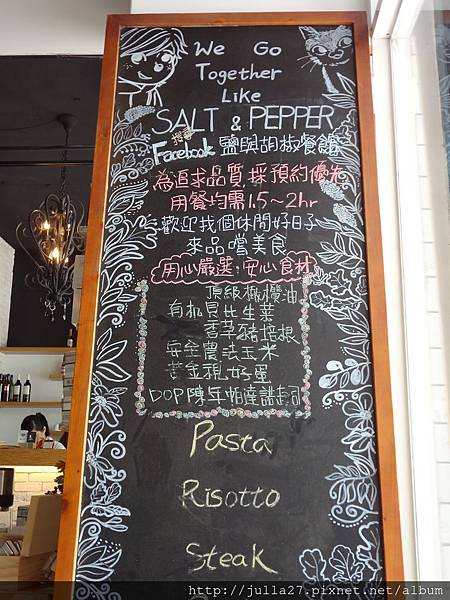 We Go
Together
Like
SALT & PEPPER
搜尋
Facebook 鹽與胡椒餐館
為追求品質,採預約優先
用餐均需1.5~2hr
歡迎找個休閒好日子
來品嚐美食
用心嚴選,安心食材
頂級橄欖油
有机貝比生菜
香草豬培根
安全農法玉米
黃金視好蛋
DOP陳年帕達諾起司
Pasta
Risotto
Steak
http://julla27.pixnet.net/album